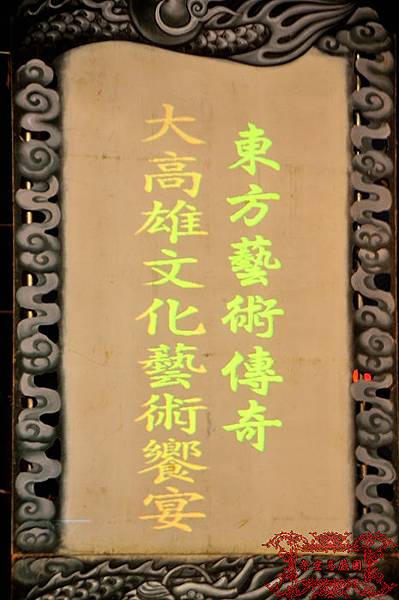 東方藝術傳奇
大高雄文化藝術饗宴